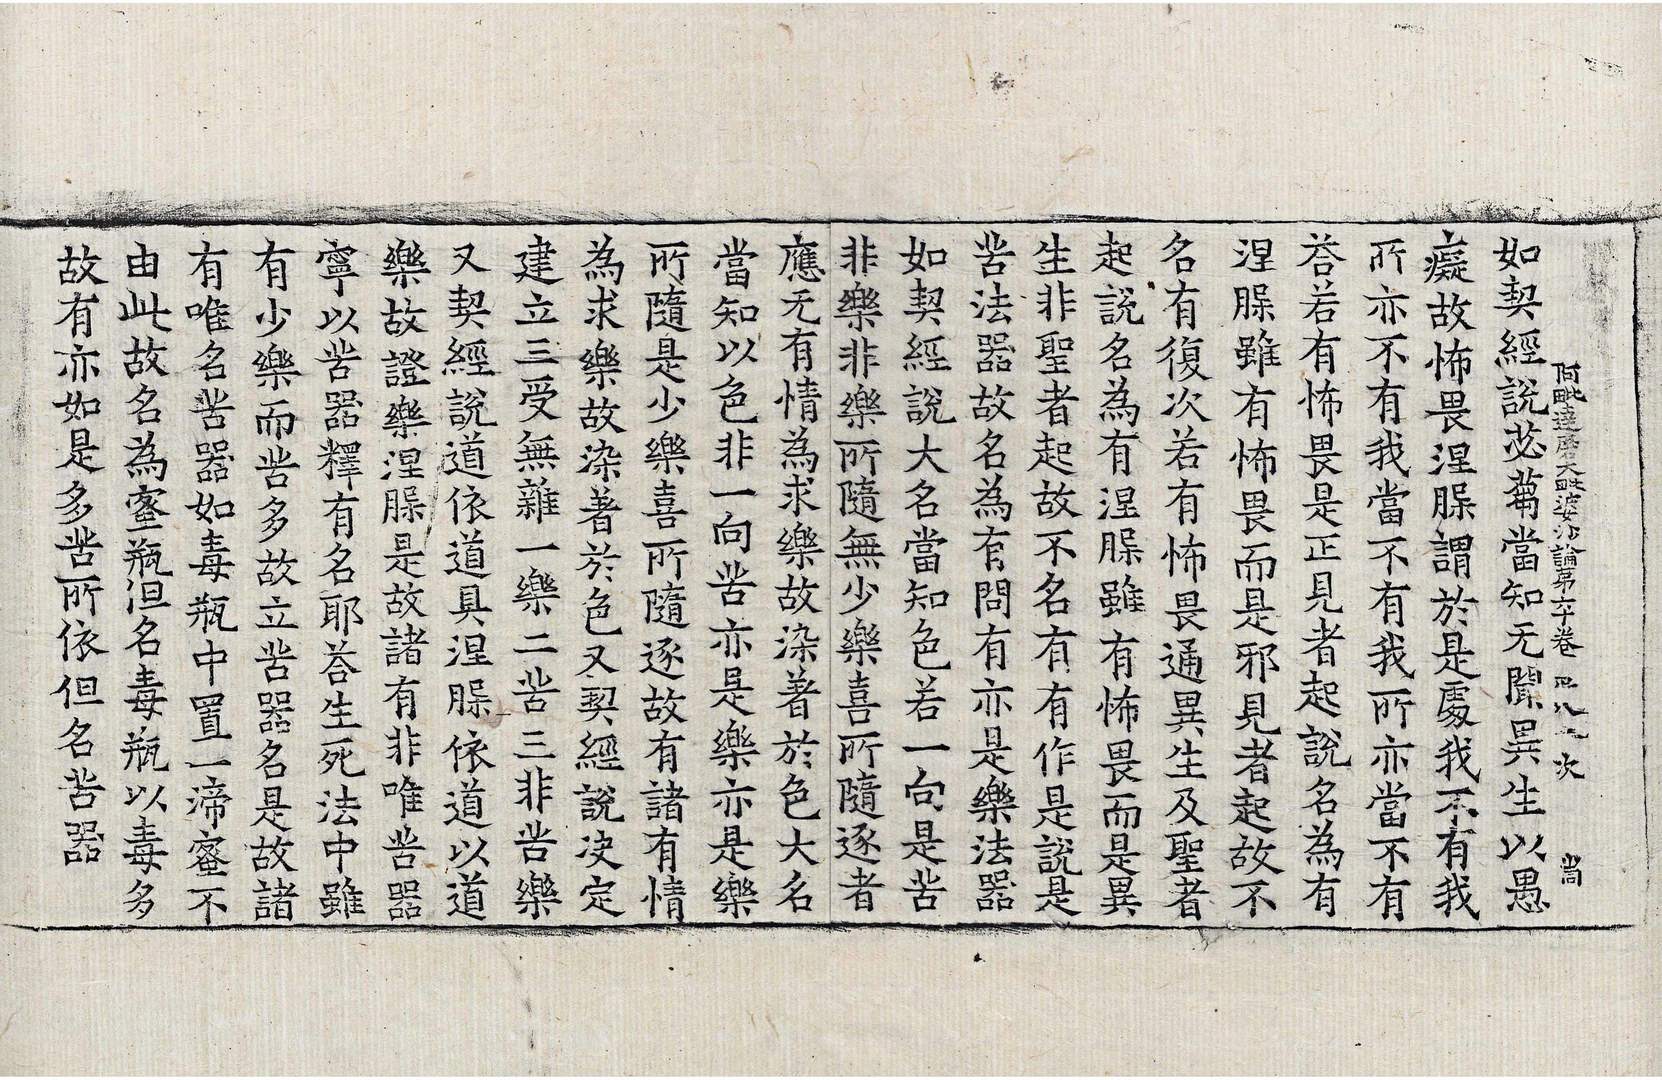 阿毗達磨大毗婆沙論第六十卷 次 當
如契經說苾蒭當知无聞異生以愚
癡故怖畏涅槃謂於是處我不有我
所亦不有我當不有我所亦當不有
荅若有怖畏是正見者起說名為有
涅槃雖有怖畏而是邪見者起故不
名有復次若有怖畏通異生及聖者
起說名為有涅槃雖有怖畏而是異
生非聖者起故不名有有作是說是
苦法器故名為有問有亦是樂法器
如契經說大名當知色若一向是苦
非樂非樂所隨無少樂喜所隨逐者
應无有情為求樂故染著於色大名
當知以色非一向苦亦是樂亦是樂
所隨是少樂喜所隨逐故有諸有情
為求樂故染著於色又契經說决定
建立三受無雜一樂二苦三非苦樂
又契經說道依道具涅槃依道以道
樂故證樂涅槃是故諸有非唯苦器
寧以苦器釋有名耶荅生死法中雖
有少樂而苦多故立苦器名是故諸
有唯名苦器如毒瓶中置一渧蜜不
由此故名為蜜瓶但名毒瓶以毒多
故有亦如是多苦所依但名苦器